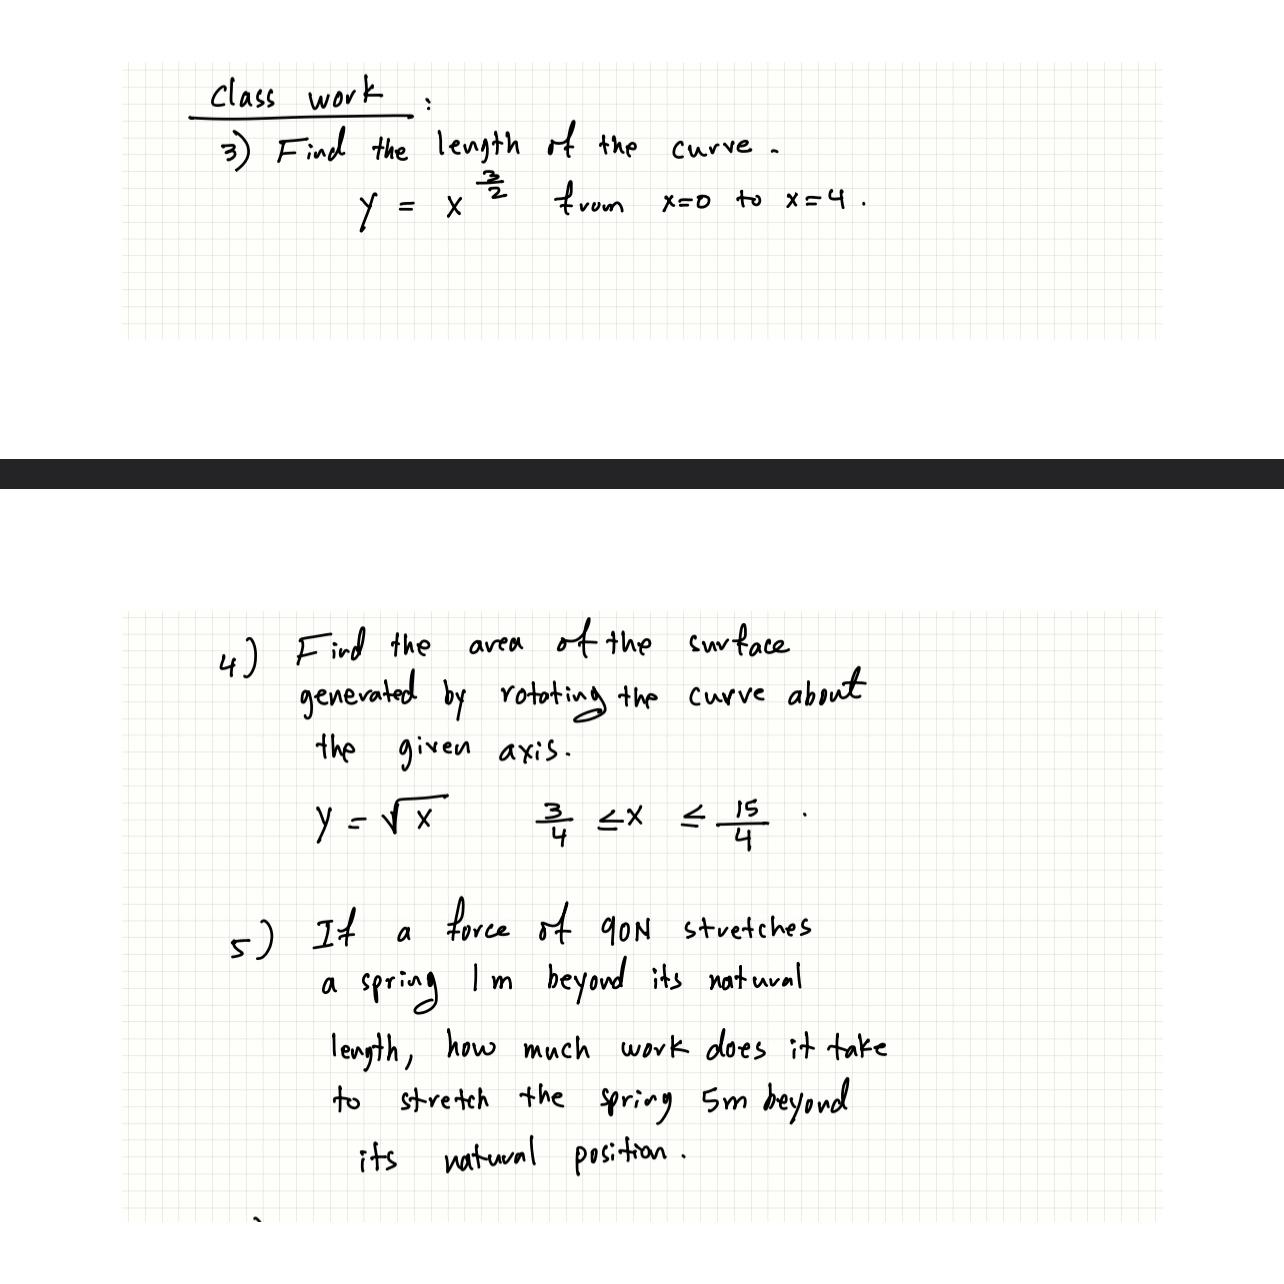 Class work :
3) Find the length of the curve.
y = x^{3/2} from x=0 to x=4.
4) Find the area of the surface
generated by rotating the curve about
the given axis.
y = √x 3/4 ≤x ≤ 15/4 .
5) If a force of 90N stretches
a spring 1m beyond its natural
length, how much work does it take
to stretch the spring 5m beyond
its natural position.